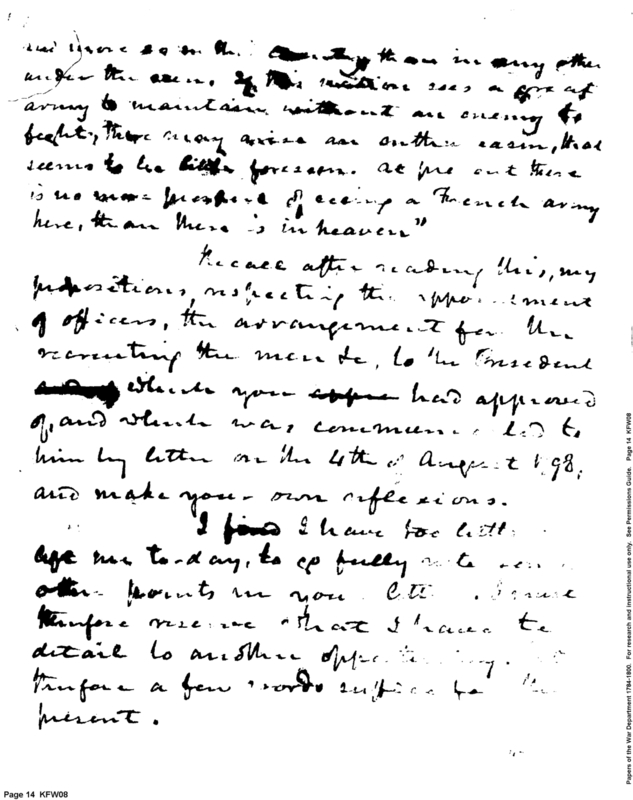 and more so in this country than in any other
under the sun. If this nation sees a great
army to maintain without an enemy to
fight, there may arise an enthusiasm, that
seems to be little foreseen. at present there
is no more prospect of seeing a French army
here, than there is in heaven"
Recall after reading this, my
propositions, respecting the appointment
of officers, the arrangement for the
recruiting the men &c, to the President
which you had approved
of, and which was communicated to
him by letter on the 4th of August 1798,
and make your own reflexions.
I I have too little
left me to-day, to go fully into
other points in your letter. I must
therefore reserve what I have to
detail to another opportunity.
Therefore a few words suffice for the
present.
Page 14 KFW08
Papers of the War Department 1784-1800. For research and instructional use only. See Permissions Guide. Page 14 KFW08